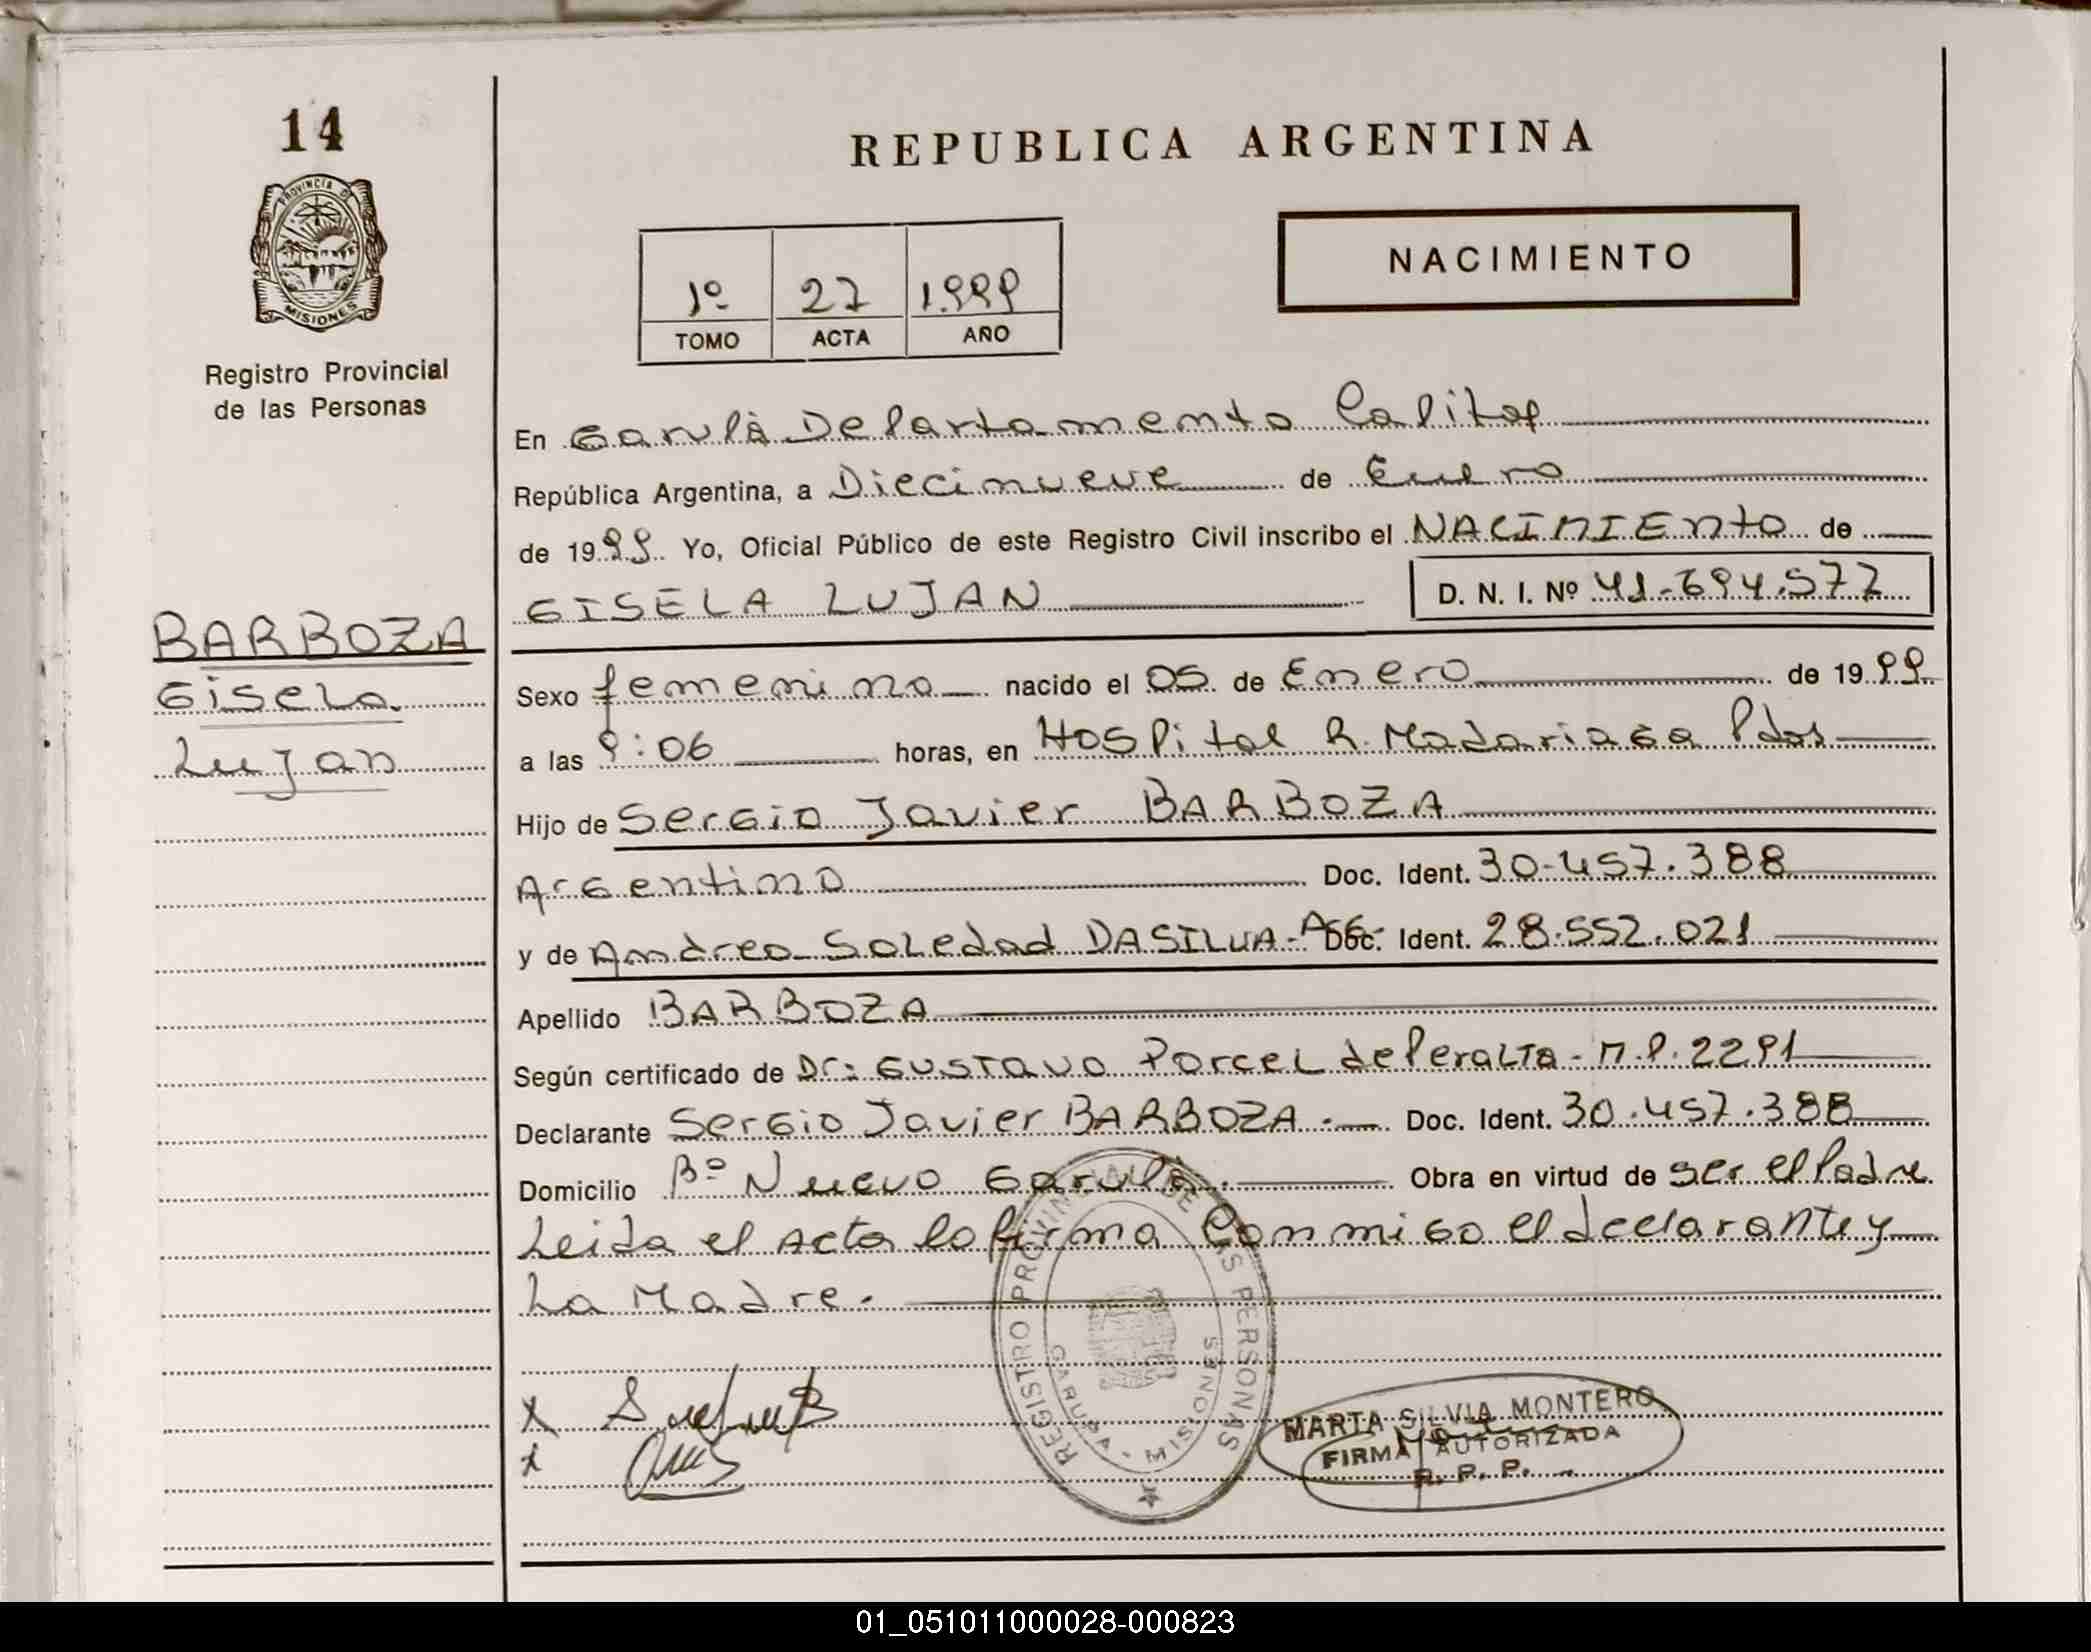 14
PROVINCIA DE
MISIONES
Registro Provincial
de las Personas
BARBOZA
Gisela
Lujan
REPUBLICA ARGENTINA
NACIMIENTO
1º 27 1.999
TOMO ACTA AÑO
En Garupá Departamento Capital
República Argentina, a Diecinueve de Enero
de 1999 Yo, Oficial Público de este Registro Civil inscribo el NACIMIENTO de
GISELA LUJAN D. N. I. Nº 41.694.577
Sexo femenino nacido el 05 de Enero de 1999
a las 9:06 horas, en Hospital R. Madariaga Pdas
Hijo de Sergio Javier BARBOZA
Argentino Doc. Ident. 30.457.388
y de Andrea Soledad DASILVA - Arg. Doc. Ident. 28.552.021
Apellido BARBOZA
Según certificado de Dr: Gustavo Porcel de Peralta - M.P. 2291
Declarante Sergio Javier BARBOZA.- Doc. Ident. 30.457.388
Domicilio Bº Nuevo Garupá. Obra en virtud de ser el Padre
Leida el Acta la firma Conmigo el declarante y
La Madre.
REGISTRO PROVINCIAL DE LAS PERSONAS
GARUPA - MISIONES
MARTA SILVIA MONTERO
FIRMA AUTORIZADA
R. P. P.
01_051011000028-000823